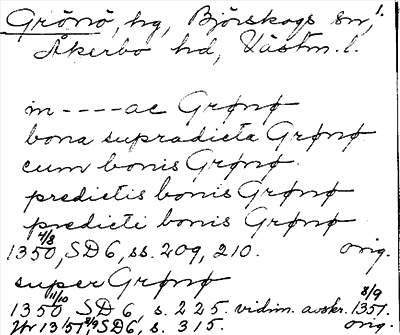 Grönö, hg, Björskogs sn, 1.
Åkerbo hd, Västm. l.
in ---- ac Grønø
bona supradicta Grønø
cum bonis Grønø
predictis bonis Grønø
predicti bonis Grønø
4/8
1350, SD 6, ss. 209, 210. orig.
super Grønø
11/10 8/9
1350 SD 6, s. 225. vidim. avskr. 1351.
Nr 13/51 8/9 SD 6, s. 315. orig.